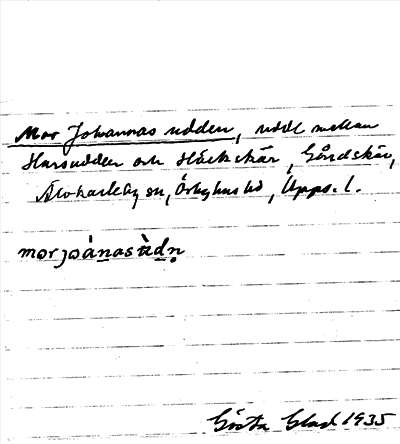 Mor Johannas udden, udde mellan
Harsudden och Häckskär, Gårdskär,
Älvkarleby sn, Örbyhus hd, Upps. l.
morjoànasùdn̥
Gösta Glad 1935